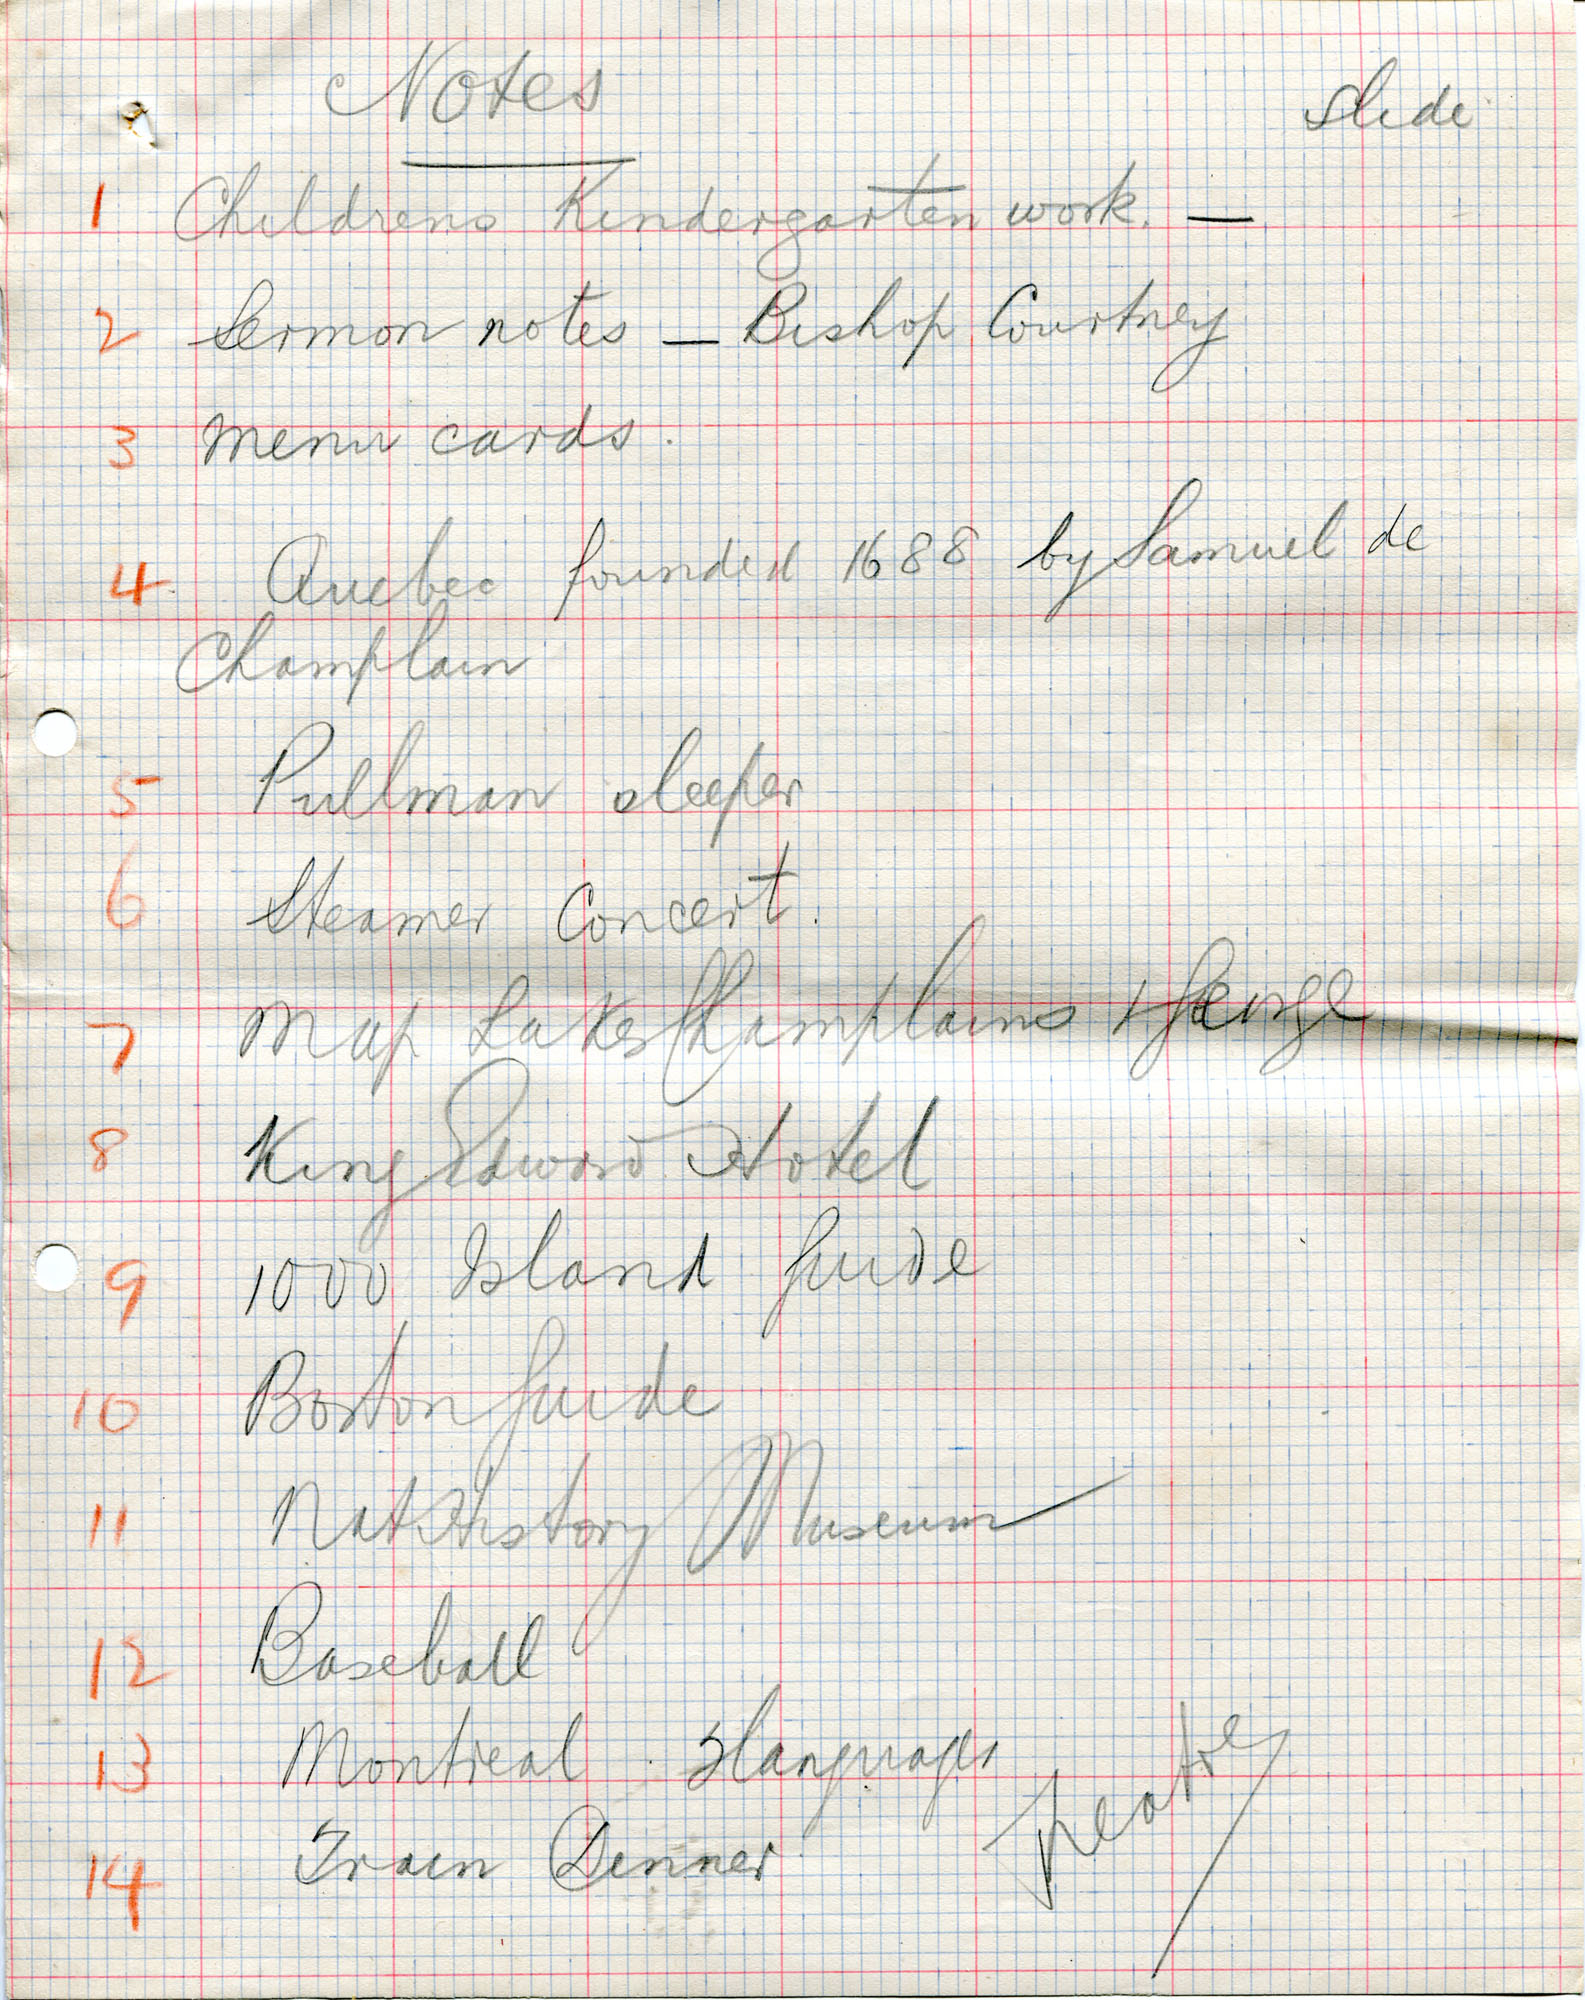 Notes
Slide
1 Childrens Kindergarten work. —
2 Sermon notes — Bishop Courtney
3 Menu cards.
4 Quebec founded 1688 by Samuel de
Champlain
5 Pullman sleeper
6 Steamer Concert.
7 Map Lakes Champlains & George
8 King Edward Hotel
9 1000 Island Guide
10 Boston Guide
11 Nat History Museum
12 Baseball
13 Montreal 3 languages
14 Train Dinner